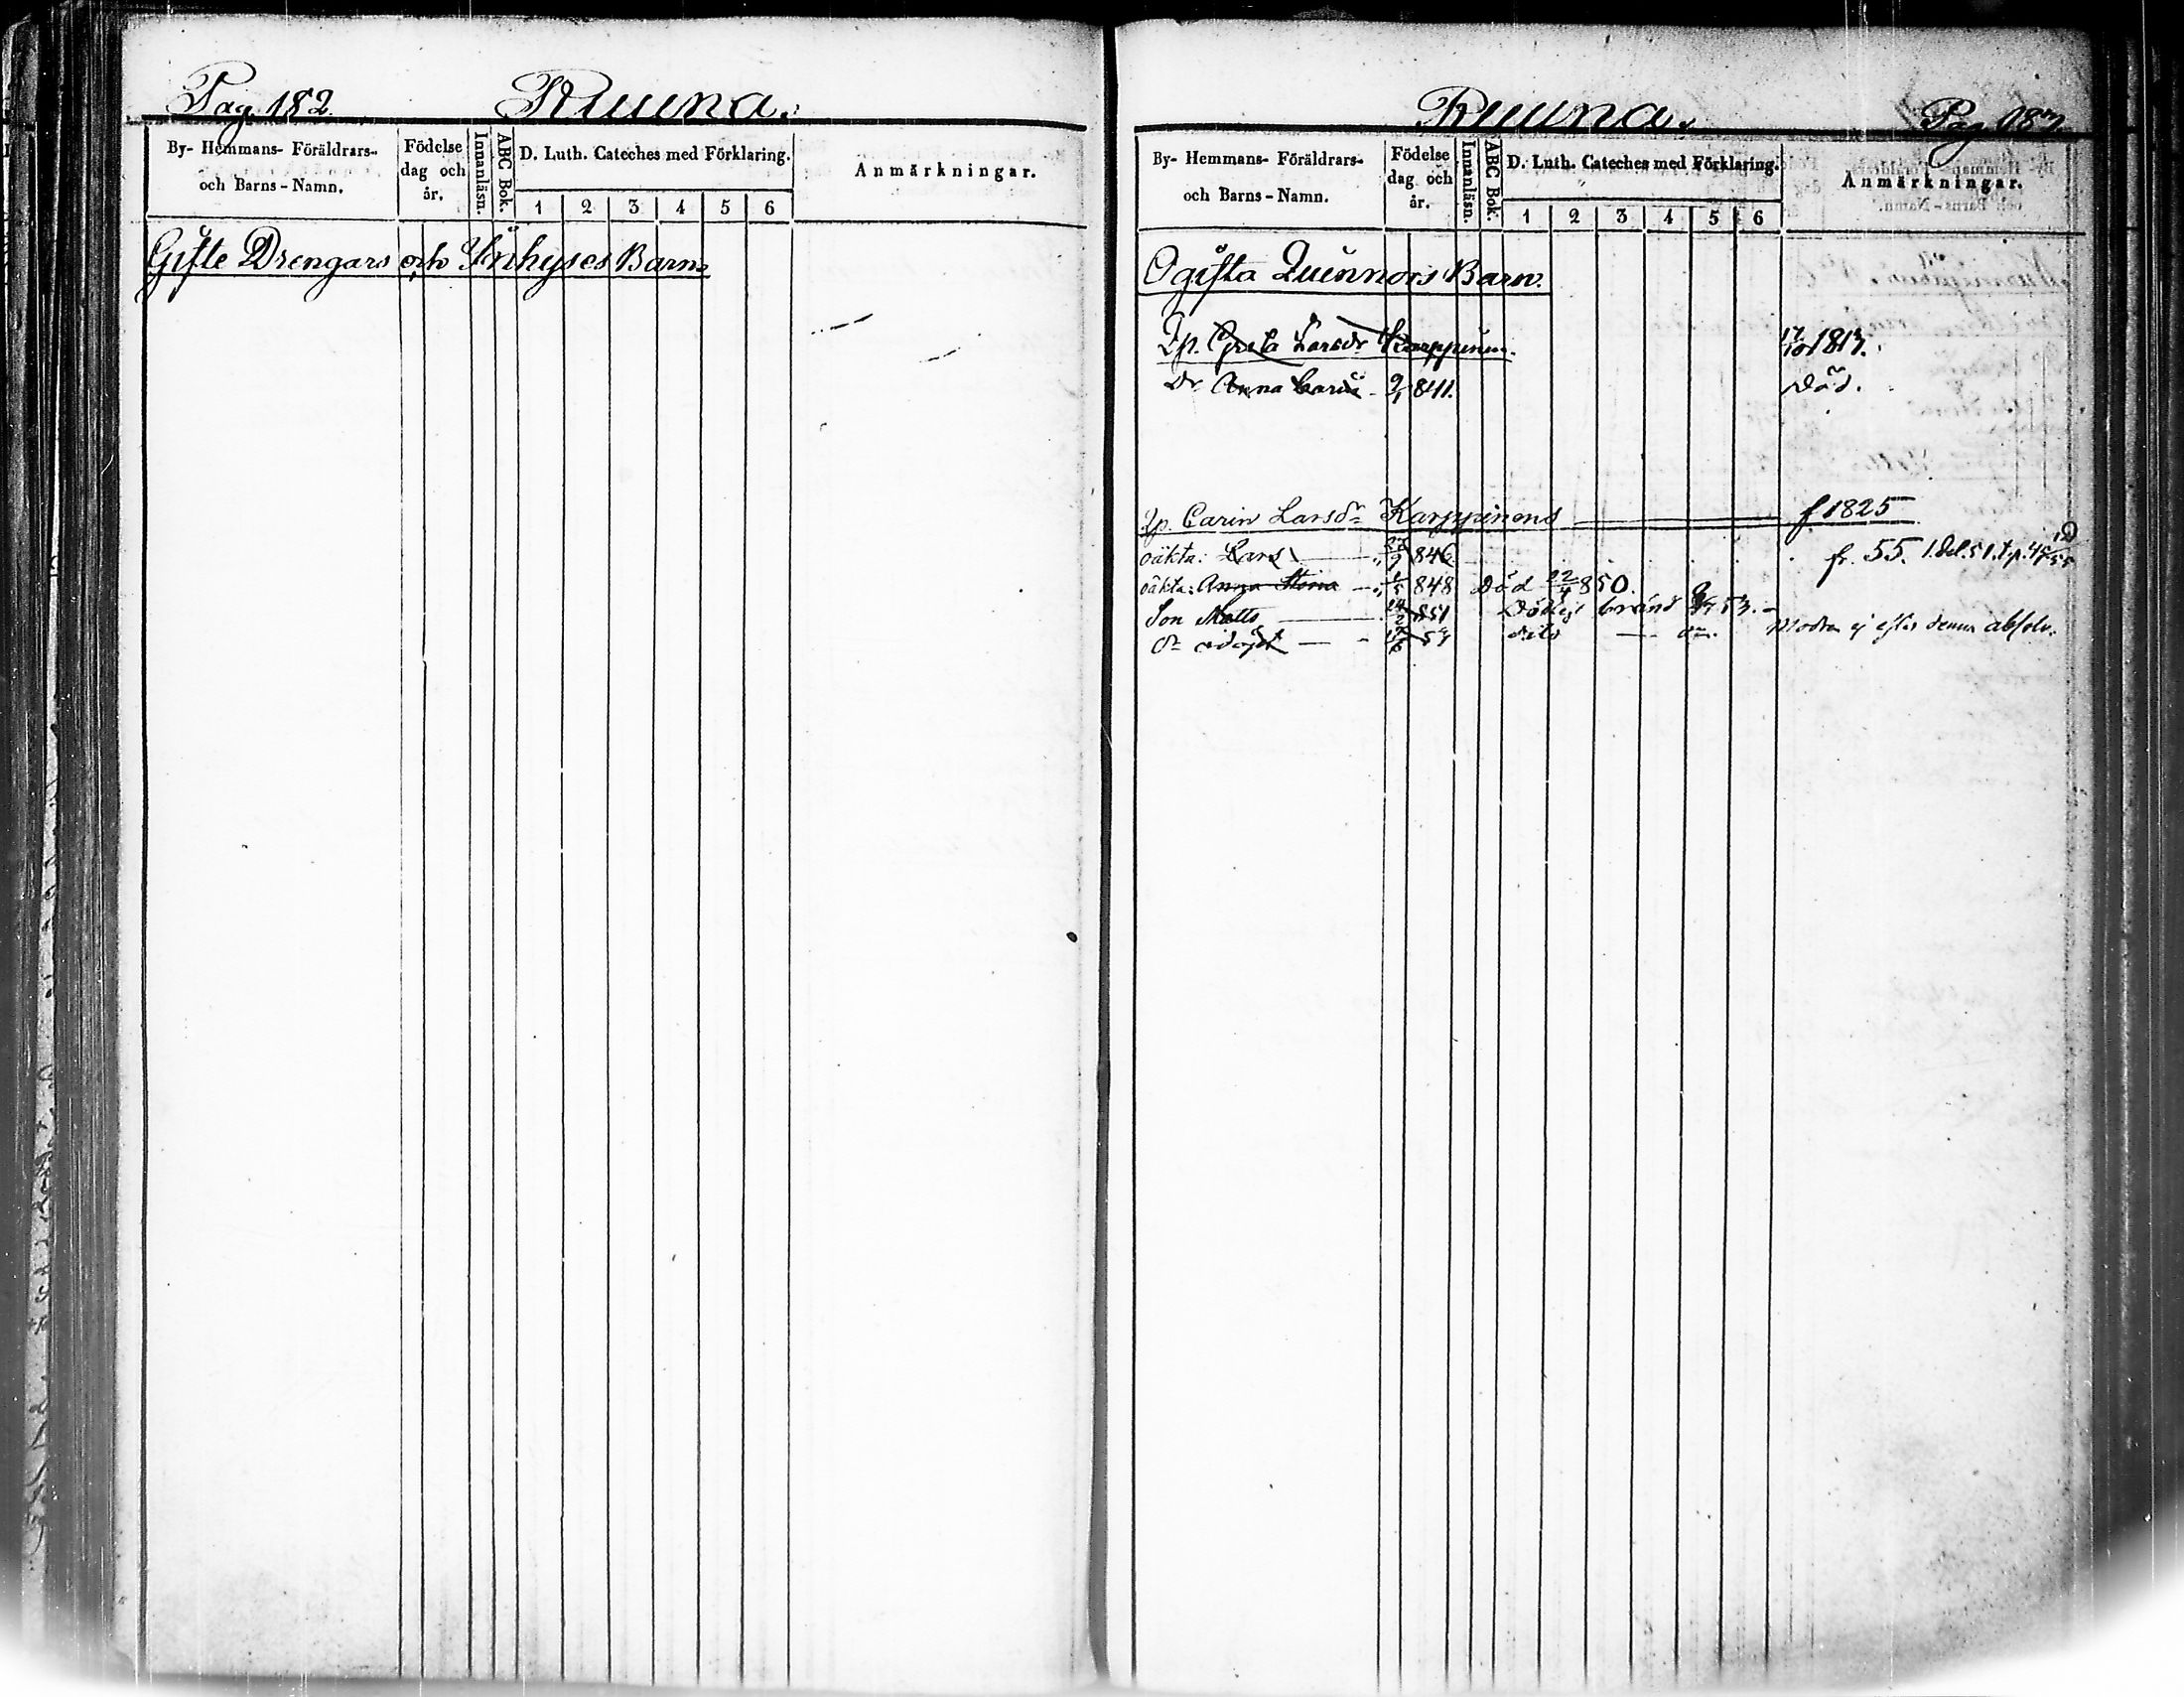 Pag. 182. Ruuna.
By- Hemmans- Föräldrars- och Barns-Namn.
Födelse dag och år.
Innanläsn.
ABC Bok.
D. Luth. Cateches med Förklaring.
1 2 3 4 5 6
Anmärkningar.
Gifte Drengars och Inhyses Barn.
Ruuna. Pag. 183.
By- Hemmans- Föräldrars- och Barns-Namn.
Födelse dag och år.
Innanläsn.
ABC Bok.
D. Luth. Cateches med Förklaring.
1 2 3 4 5 6
Anmärkningar.
Ogifta Quinnors Barn.
Qp. Greta Larsdr Karppinen. 17/10 1817.
Dr Anna Carin 841. Död.
Qp. Carin Larsdr Karppinens f 1825
oäkta: Lars 846 fr. 55. 1.del. 51.
oäkta: Anna Stina 848 Död 22/4 850.
Son Matts 14/2 851 bränd 53.
dr 53 dito Modren ej efter denna absolv.